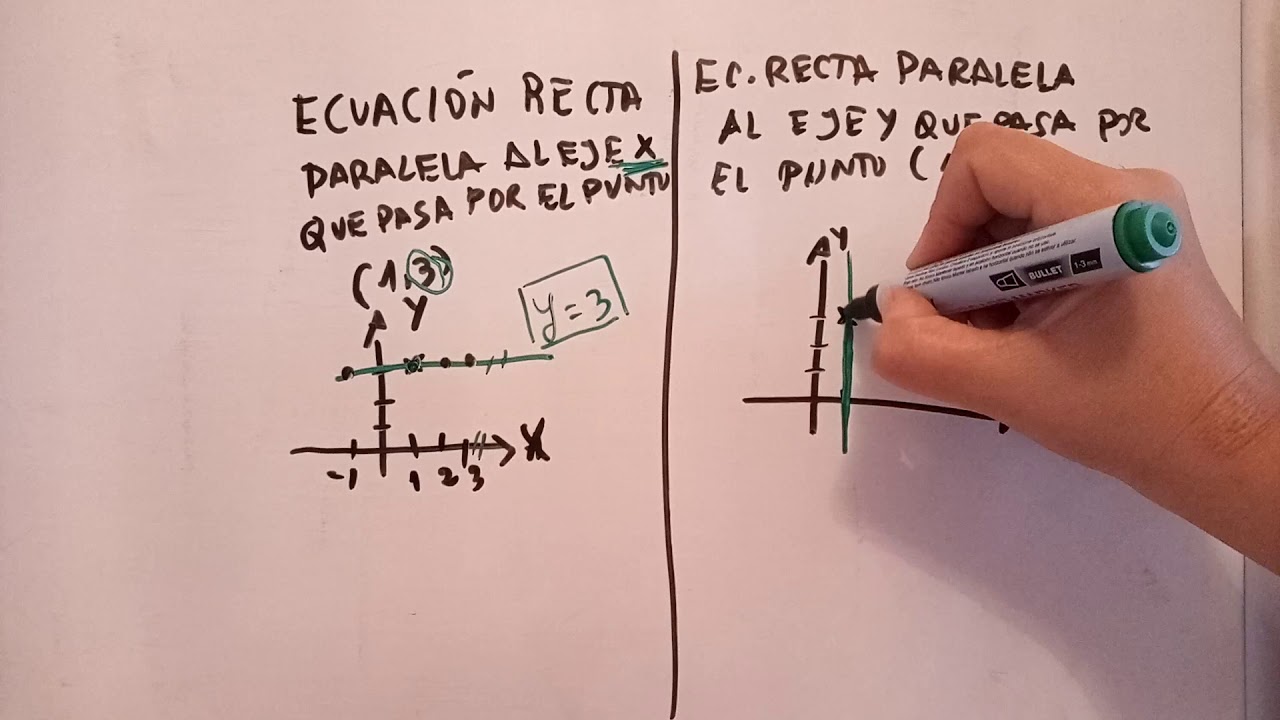 ECUACIÓN RECTA
PARALELA AL EJE X
QUE PASA POR EL PUNTO
(1,3)
Y
y=3
X
-1 1 2 3
EC. RECTA PARALELA
AL EJE Y QUE PASA POR
EL PUNTO (1
Y
BULLET
1-3 mm